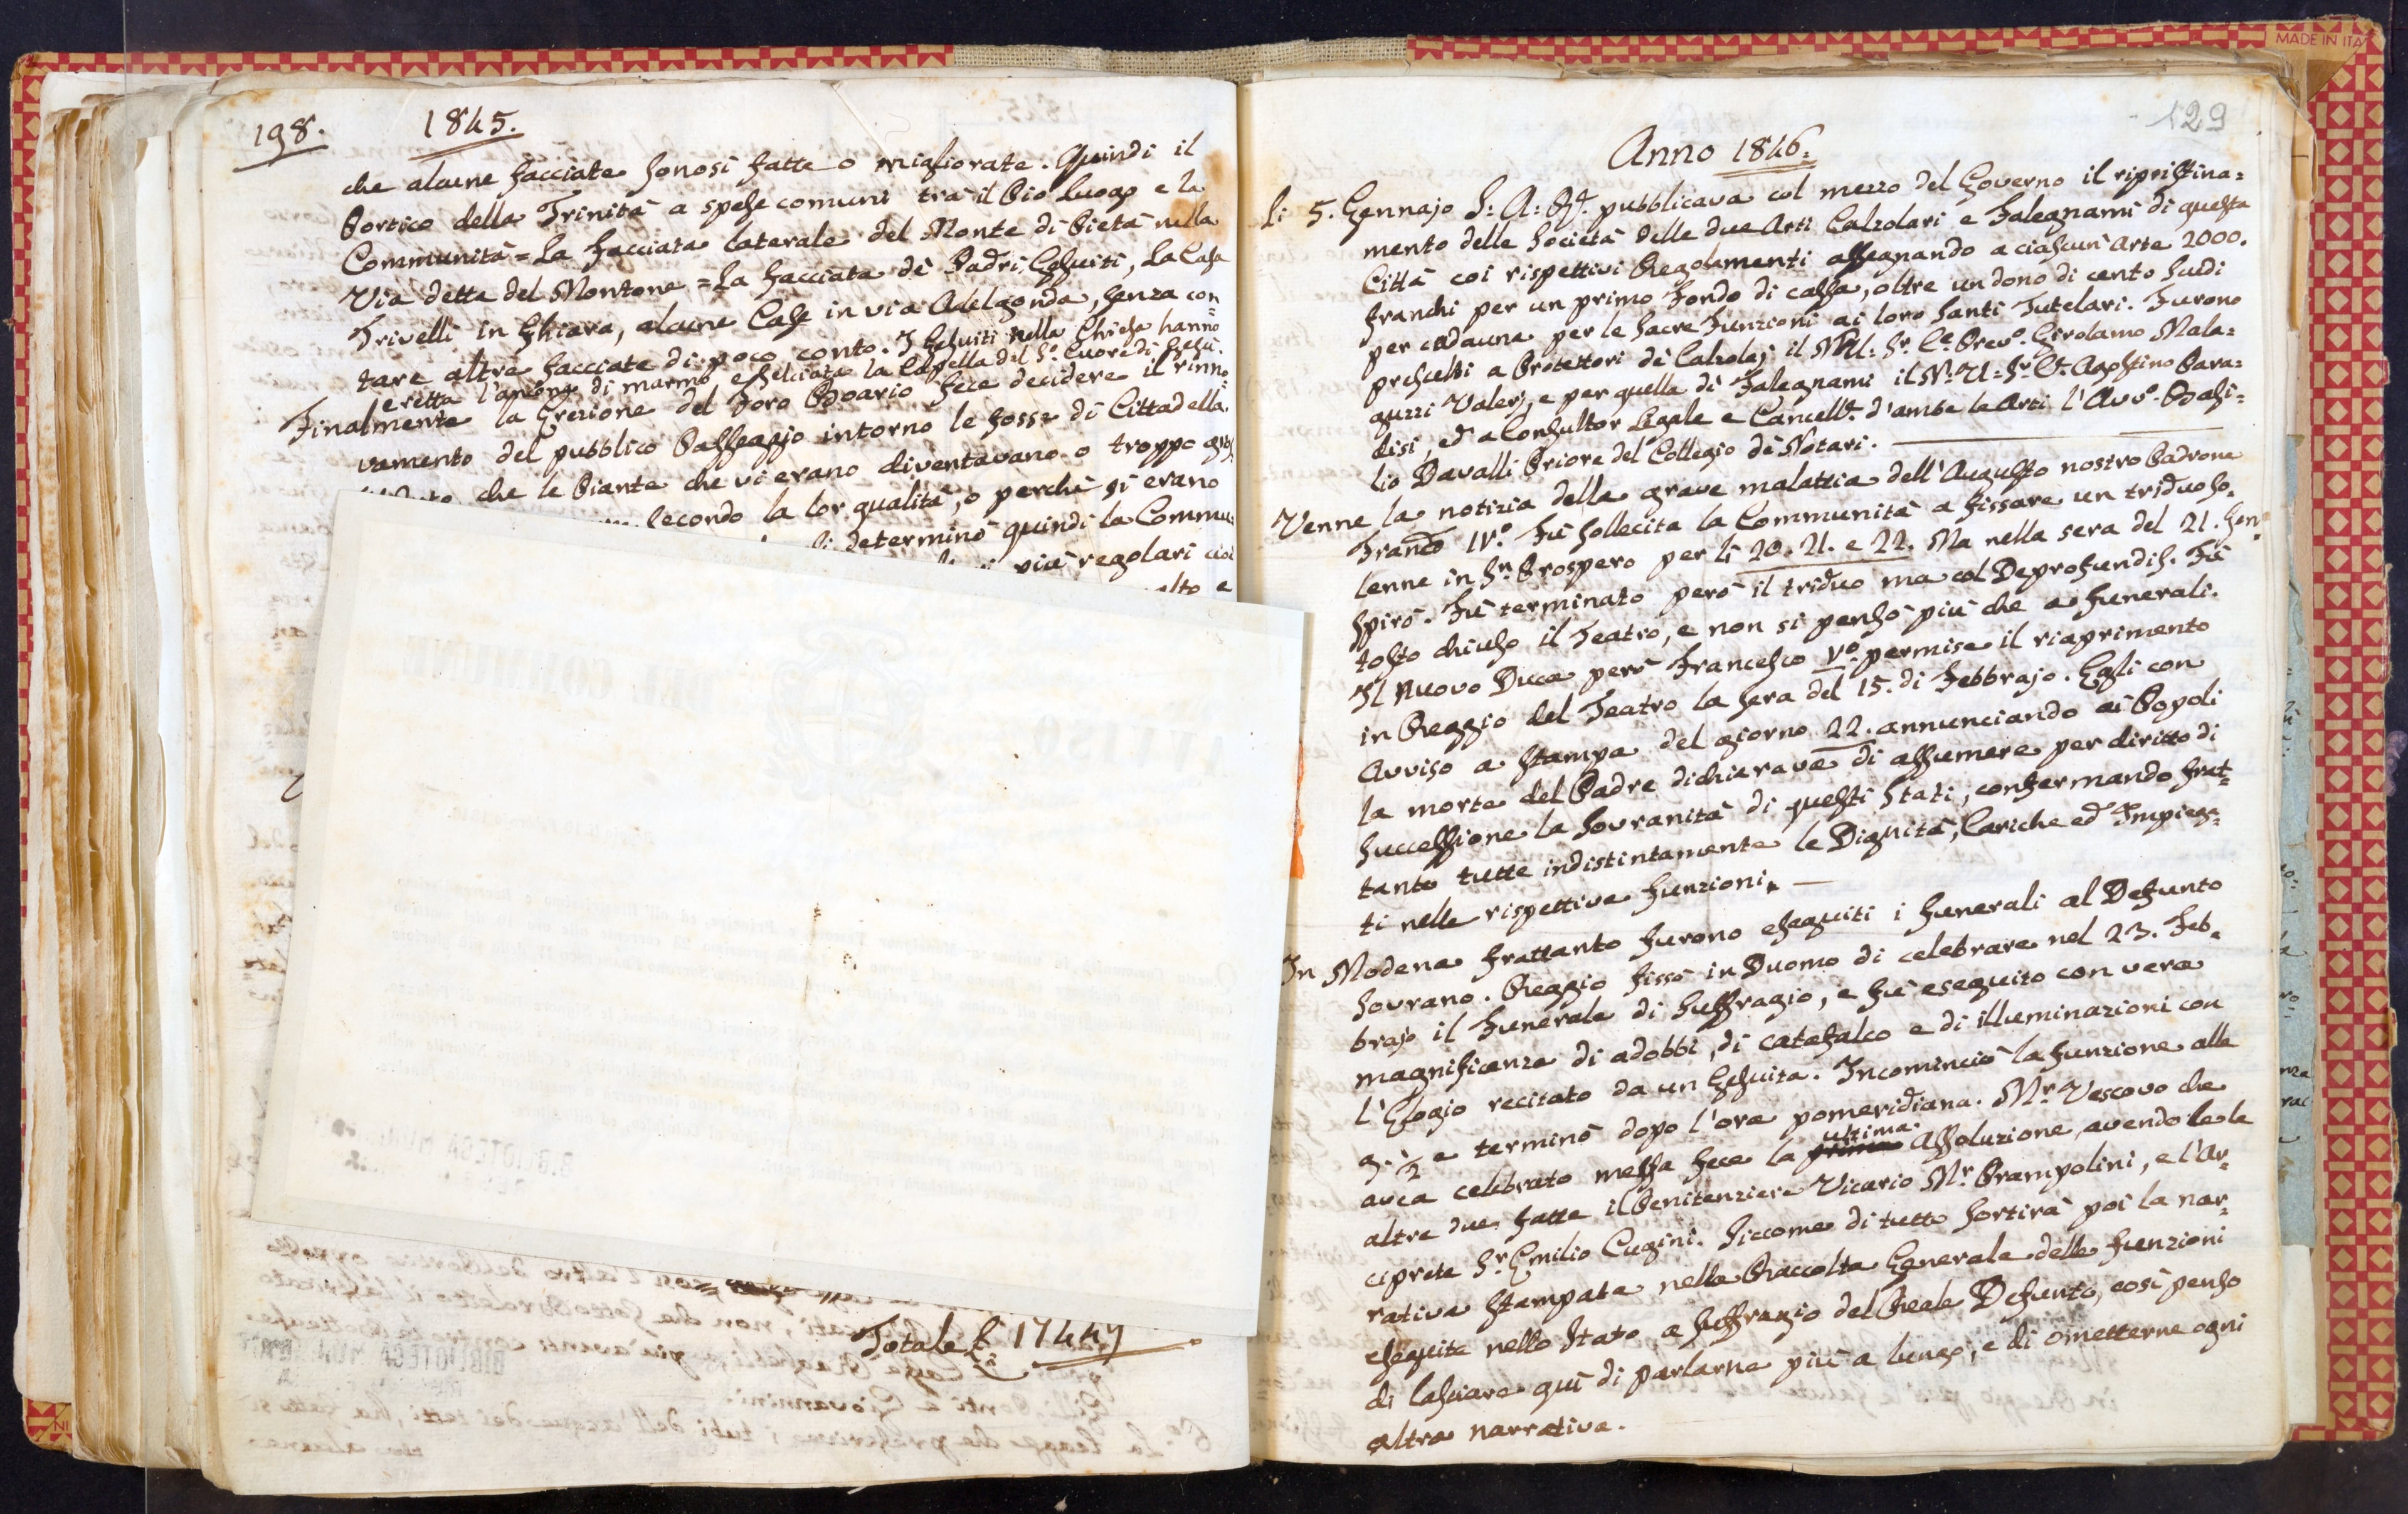 198.
1845.
che alcune facciate sonosi fatte o migliorate. Quindi il
Portico della Trinità a spese comuni trà il Pio Luogo e la
Communità = La facciata laterale del Monte di Pietà nella
Via detta del Montone = La facciata dè Padri Gesuiti, La Casa
Trivelli in Ghiara, alcune Case in via Adelgonda, senza con=
tare altre facciate di poco conto. I Gesuiti nella Chiesa hanno
eretta l' di marmo e selciata la Capella del S. Cuore di Gesù.
Finalmente la Erezione del Foro Boario fece decidere il rinno=
vamento del pubblico Passeggio intorno le fosse di Cittadella.
che le Piante che vi erano diventavano o troppo
secondo la lor qualità, o perchè si erano
si determinò quindi la Commu
più regolari
alto e
Totale £ 17447
129
Anno 1846.
Li 5. Gennajo S: A: R. pubblicava col mezzo del Governo il ripristina=
mento delle Società delle due Arti Calzolari e Falegnami di questa
Città coi rispettivi Regolamenti assegnando a ciascun'Arte 2000.
franchi per un primo fondo di cassa, oltre un dono di cento scudi
per cadauna per le sacre Funzioni ai loro Santi Tutelari. Furono
prescelti a Protettori dè Calzolaj il Sr. Girolamo Mala=
guzzi Valerj, e per quella di Falegnami il Sr. Agostino Para=
disi, ed a Consultor Legale e Cancell.e d'ambe le Arti l'Avvo. Basi=
lio Davalli Priore del Collegio dè Notari.
Venne la notizia della grave malattia dell'Augusto nostro Padrone
Franco IVo. Fù sollecita la Communità a fissare un triduo so=
lenne in Sn. Prospero per li 20. 21. e 22. Ma nella sera del 21. Gen.o
spirò. Fù terminato però il triduo ma col Deprofundis. Fù
tosto chiuso il Teatro, e non si pensò più che a funerali.
Il nuovo Duca però Francesco Vo. permise il riaprimento
in Reggio del Teatro la sera del 15. di Febbrajo. Egli con
Avviso a stampa del giorno 22. annunciando ai Popoli
la morte del Padre dichiarava di assumere per diritto di
successione la Sovranità di questi Stati, confermando frat=
tanto tutte indistintamente le Dignità, Cariche ed Impiega=
ti nelle rispettive funzioni.
In Modena frattanto furono eseguiti i funerali al Defunto
Sovrano. Reggio fissò in Duomo di celebrare nel 23. Feb=
brajo il Funerale di Suffragio, e fù eseguito con vera
magnificenza di adobbi, di catafalco e di illuminazioni con
l'Elogio recitato da un Gesuita. Incominciò la funzione alle
9. ½ e terminò dopo l'ora pomeridiana. Mr. Vescovo che
avea celebrato messa fece la prima ultima Assoluzione, avendo le le
altre due fatte il Penitenziere Vicario Mr. Prampolini, e l'Ar=
ciprete Sr. Emilio Cugini. Siccome di tutto sortirà poi la nar=
rativa stampata nella Raccolta Generale delle funzioni
eseguite nello Stato a suffragio del Reale Defunto, così penso
di lasciare quì di parlarne più a lungo, e di ometterne ogni
altra narrativa.
MADE IN ITA